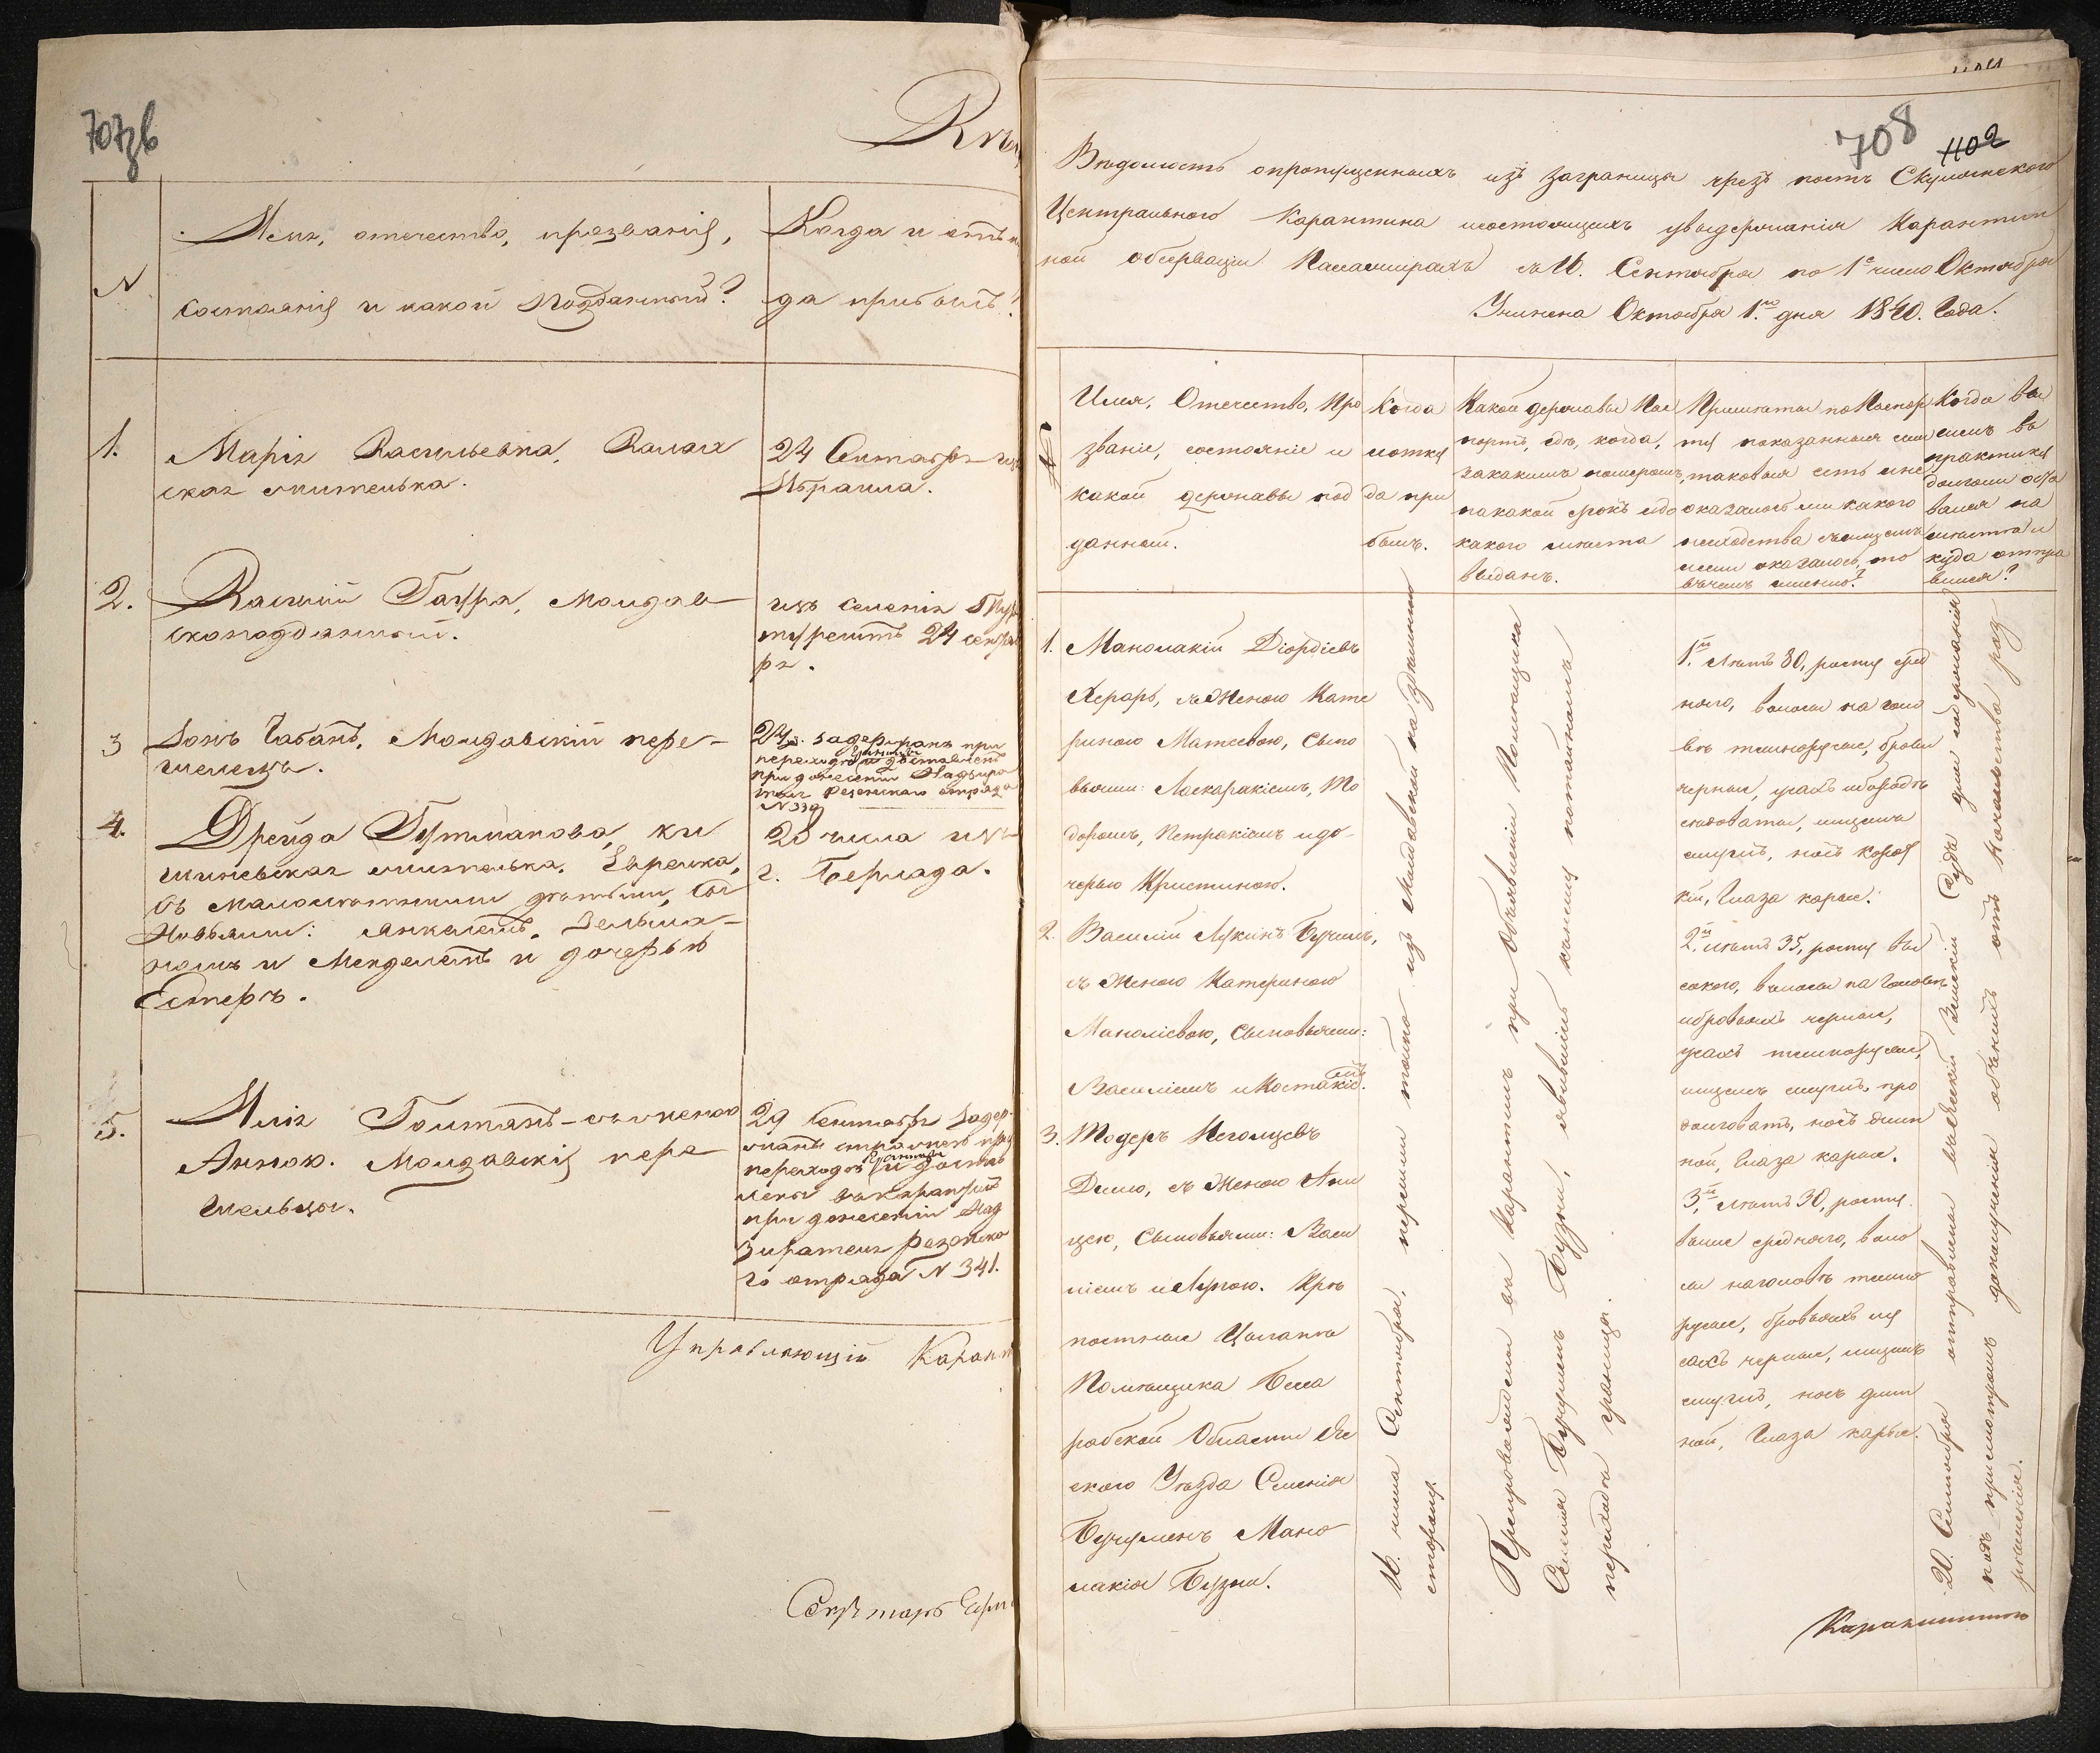 707зв
N
Имя, отечество, прозваніе,
состоянія и какой Подданный?
Когда и отъ
да прибылъ?
1.
Марія Васильевна, Валах
ская жителька.
24 Сентября изъ
Ибраила.
2.
Василій Гагура, Молдав
скоподданный.
изъ селенія
24 сентяб
ря.
3
Іонъ Чабанъ, Молдавскій пере-
шелецъ.
24 задержанъ при
переходѣ границы и доставленъ
при донесеніи Надзира
теля Резенскаго отряда
N 339
4.
Дрейда Гутманова, ки
шиневская жителька, Еврейка,
съ малолѣтними дѣтьми, Сы
новьями: Янкелемъ, Зельма-
номъ и Менделемъ и дочерью
Естеръ.
28 числа изъ
г. Берлада.
5.
Илія Голтанъ съ женою
Анною. Молдавскія пере
шельцы.
29 Сентября задер
жаны стражею при
переходѣ границы и достав
лены въ карантинъ
при донесеніи Над
зирателя Резенска
го отряда N 341.
Управляющій Карант
Секретарь
708
1102
Вѣдомость о пропущенныхъ изъ заграницы чрезъ постъ Скулянскаго
Центральнаго Карантина и состоящихъ у выдержанія Карантин
ной обсерваціи Пассажирахъ съ 16. Сентября по 1е число Октября
Учинена Октября 1го дня 1840. Года.
№
Имя, Отечество, Про
званіе, состояніе и
какой державы под
данной.
Когда
и отку
да при
былъ.
Какой державы Пас
портъ, гдѣ, когда,
за какимъ номеромъ,
на какой срокъ и до
какого мѣста
выданъ.
Примѣты по Паспор
ту показанныя
таковыя есть и не
оказалось ли какого
несходства съ лицемъ
и если оказалось, то
въ чемъ именно?
Когда вы
шелъ въ
практику
долголи оста
вался на
мѣстѣ и
куда отпра
вился?
1. Маномакій Діордіевъ
Херарь, съ Женою Кате
риною Матеевою, Сыно
вьями: Ласкаракіемъ, То
доромъ, Петракіемъ и до-
черью Кристиною.
2. Василій Лукинъ Бучилъ,
съ Женою Катериною
Манолѣевою, Сыновьями:
Василіемъ и Костакіемъ.
3. Тодеръ Неголцевъ
Дешо, съ Женою Ани
цею, Сыновьями: Васи
ліемъ и Лупою. Крѣ
постные Цыгане
Помѣщика Бесса
рабской Области Яс
скаго Уѣзда Селенія
Бучуменъ Мано
лакія Бузни.
16. числа Сентября, перешли тайно изъ Молдавской на здѣшнюю
сторону.
Препровождены въ Карантинъ при объявленіи Помѣщика
Селенія Бучуменъ Бузни, явившись къ нему по тайномъ
переходѣ границы.
1й Лѣтъ 80, росту сред
няго, волосы на голо
вѣ темнорусые, брови
черные, усахъ и бородѣ
сѣдоватые, лицемъ
смуглъ, носъ корот
кій, Глаза карые.
2й лѣтъ 35, росту вы
сокаго, волосы на Головѣ
и бровяхъ черные,
усахъ темнорусые,
лицемъ смуглъ, про
долговатъ, носъ длин
ной, Глаза карые.
3й лѣтъ 30, росту
выше средняго, воло
сы на головѣ темно
русые, бровяхъ и у
сахъ черные, лицемъ
смуглъ, носъ длин
ной, Глаза карые.
20. Сентября отправлены въ Ясскій Земскій Судъ для содержанія
подъ присмотромъ до полученія объ нихъ отъ Начальства раз
рѣшенія.